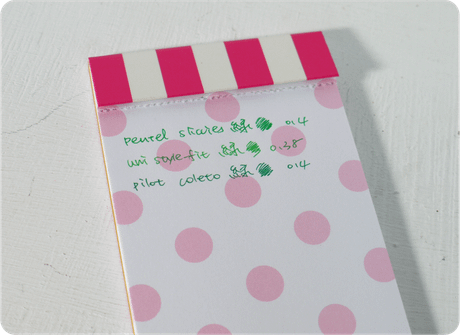 pentel slicies 緑 0.4
uni style fit 緑 0.38
pilot coleto 緑 0.4